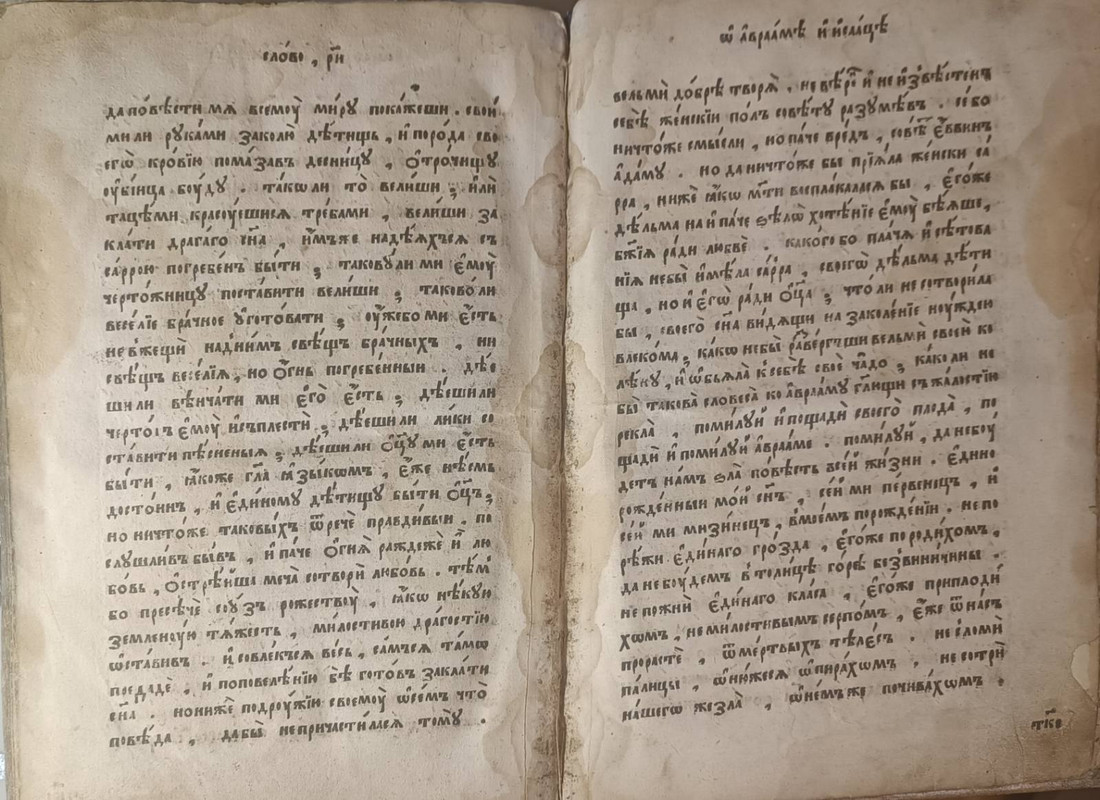 слово, рн҃
да повѣсти мѧ всемоу миру покажеши. свои
ми ли руками заколю дѣтищь, и порода сво
егѡ кровїю помазавъ десницу, ѻтрочищу
оубїица боуду. такѡ ли то велиши; или
тацѣми красоуешисѧ требами, велиши за
клати драгаго сн҃а, имъже надѣѧхъсѧ съ
саррою погребенъ быти; таковули ми емоу
чертожницу поставити велиши; таково ли
веселїе брачное уготовати; оужебо ми есть
не вжещи над нимъ свѣщъ брачныхъ, ни
свѣщъ веселїѧ, но ѻгнь погребенныи. дѣе
ши ли вѣнчати ми его есть; дѣеши ли
чертогъ емоу исъплести; дѣеши ли лики со
ставити пѣсненыѧ; дѣеши ли ѻц҃у ми есть
быти, ꙗкоже гл҃ѧ ꙗзыкѡмъ, еже нѣсмь
достоинъ, и единому дѣтищу быти ѻц҃ъ;
но ничтоже таковыхъ ѿрече правдивыи. по
слушливъ бывъ, и паче ѻгнѧ раждеже и лю
бовь, ѻстрѣиши меча сотвори любовь. тѣм
бо пресѣче соузъ рожествоу, ꙗкѡ нѣкую
земленоую тѧжесть, милостивою драгостїю
ѡставивъ. и совлекъсѧ весь, самъсѧ тамѡ
предаде, и по повелѣнїю бж҃їю готов заклати
сн҃а. но ниже подроужїю своемоу ѡ семъ что
повѣда, дабы не причастиласѧ тому.
ѡ авраамѣ и исаацѣ
вельми добрѣ творѧ. не вѣрно и не извѣстенъ
себѣ женскїи полъ совѣту разумѣвъ. се бо
ничтоже смысли, но паче вредъ, совѣтъ еввинъ
адаму. но да ничтоже бы прїѧла женски са
рра, ниже ꙗкѡ мт҃и восплакаласѧ бы, егоже
дѣльма наипаче ѕѣлѡ хотѣнїе емоу бѣѧше,
бж҃їѧ ради любве. какого бо плача и сѣтова
нїѧ небы имѣла сарра, своегѡ дѣльма дѣти
ща, но и егѡ ради ѻц҃а; что ли не сотворила
бы, своего сн҃а видѧщи на заколенїе ноуждею
влекома; какѡ небы развергъши вельми своеи ко
лѣну, и ѡбъѧла к себѣ свое чадо; како ли не
бы такова словеса ко аврааму гл҃ющи съ жалостїю
рекла, помилуи и пощади своего плода, по
щади и помилуи аврааме. помилуи, да небоу
детъ намъ ѕла повѣсть всеи жизни. едино
рожденныи мои сн҃ъ, сеи ми первенецъ, и
сеи ми мизинецъ, в моемъ порожденїи. не по
рѣжи единаго грозда, егоже породихомъ,
да не боудемъ в толицѣ горѣе безвиничины.
не пожни единаго класа, егоже приплоди
хѡмъ, не милостивымъ серпомъ, еже ѿ насъ
прорасте, ѿ мертвыхъ тѣлесъ. не сломи
палицы, ѡ нюжесѧ ѡпирахѡмъ. не сотри
нашегѡ жезла, ѡ немъже почивахѡмъ.
тко